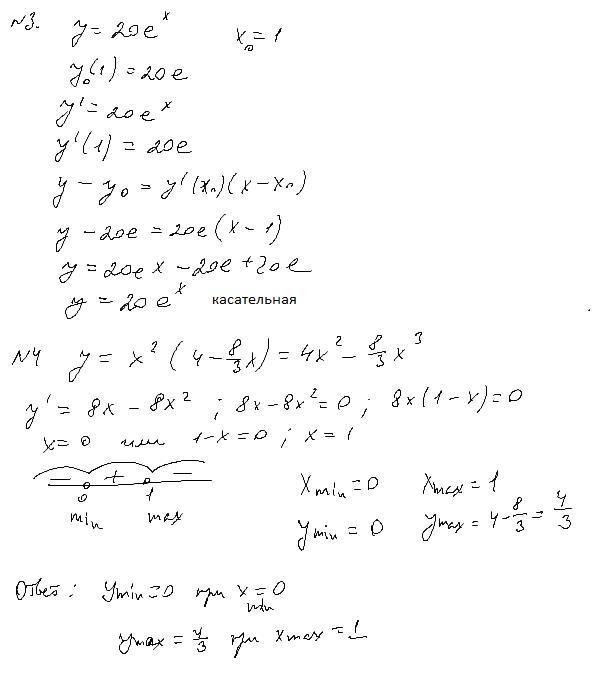 №3. y = 20e^x x₀ = 1
y₀(1) = 20e
y' = 20e^x
y'(1) = 20e
y - y₀ = y'(x₀)(x - x₀)
y - 20e = 20e(x - 1)
y = 20ex - 20e + 20e
y = 20e^x касательная
№4 y = x²(4 - 8/3x) = 4x² - 8/3x³
y' = 8x - 8x² ; 8x - 8x² = 0 ; 8x(1 - x) = 0
x = 0 или 1 - x = 0 ; x = 1
- + -
0 1
min max
x min = 0 x max = 1
y min = 0 y max = 4 - 8/3 = 4/3
Ответ: y min = 0 при x min = 0
y max = 4/3 при x max = 1